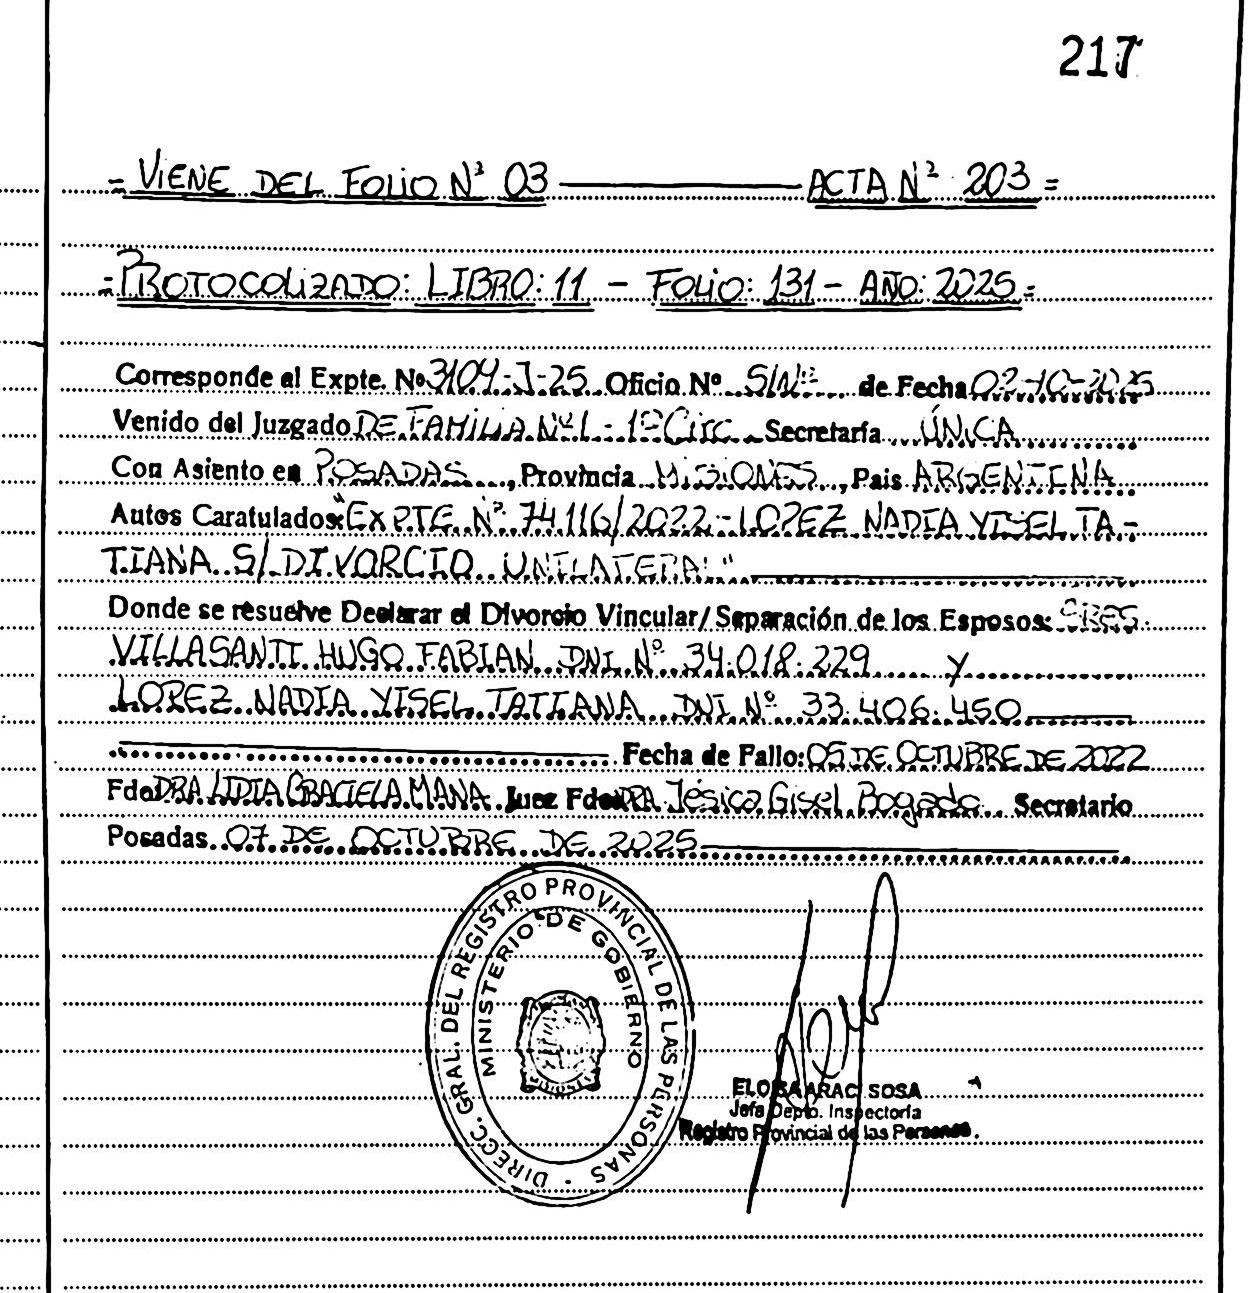 217
= VIENE DEL FOLIO Nº 03 ——— ACTA Nº 203 =
= PROTOCOLIZADO: LIBRO: 11 - FOLIO: 131 - AÑO: 2025 =
Corresponde al Expte. Nº 3104-J-25 Oficio Nº S/Nº de Fecha 02-10-2025
Venido del Juzgado DE FAMILIA Nº 1 - 1º Circ. Secretaría ÚNICA
Con Asiento en POSADAS, Provincia MISIONES, Pais ARGENTINA
Autos Caratulados: "EXPTE. Nº 74.116/2022 - LOPEZ NADIA YISEL TA-
TIANA S/ DIVORCIO UNILATERAL"
Donde se resuelve Declarar el Divorcio Vincular/Separación de los Esposos: SRES.
VILLASANTI HUGO FABIAN DNI Nº 34.018.229 y
LOPEZ NADIA YISEL TATIANA DNI Nº 33.406.450
Fecha de Fallo: 05 DE OCTUBRE DE 2022
Fdo DRA LIDIA GRACIELA MANA Juez Fdo DRA Jésica Gisel Bogado Secretario
Posadas 07 DE OCTUBRE DE 2025
DIRECC. GRAL. DEL REGISTRO PROVINCIAL DE LAS PERSONAS
MINISTERIO DE GOBIERNO
ELOISA ARAC SOSA
Jefa Depto. Inspectoría
Registro Provincial de las Personas